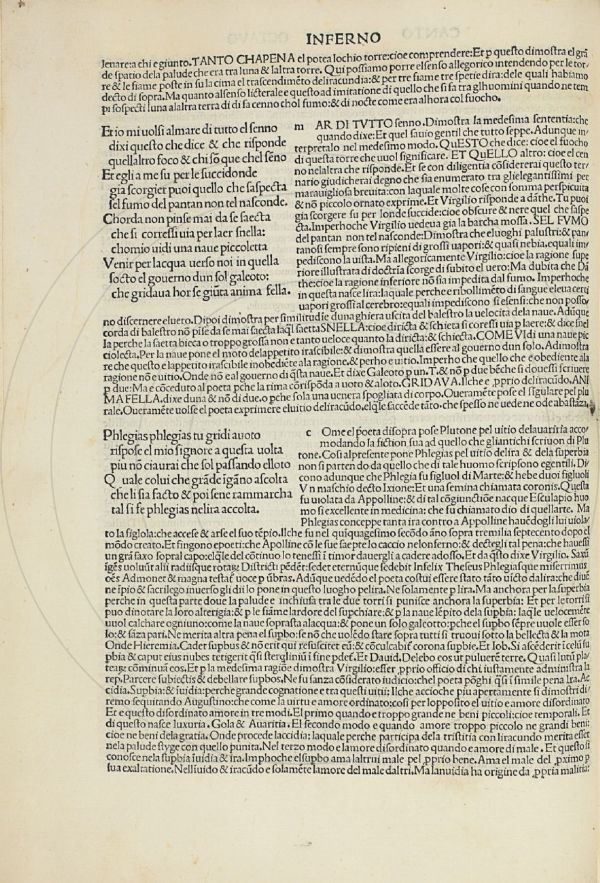 INFERNO
lenare: a chi e giunto. TANTO CHAPENA el potea lochio torre: cioe comprendere: Et p questo dimostra el grã
de spatio dela palude che era tra luna & laltra torre. Qui possiamo porre elsenso allegorico intendendo per le tor-
re & le fiame poste in su la cima el trascendimẽto deliracundia: & per tre fiame tre sperie dira: dele quali habiamo
decto di sopra. Ma quanto alsenso licterale e questo ad imitatione di quello che si fa tra glhuomini quando ne tem
pi sospecti luna alaltra terra di di fa cenno chol fumo: & di nocte come era alhora col fuocho.
Et io mi uolsi almare di tutto el senno
dixi questo che dice & che risponde
quellaltro foco & chi sõn que chel fẽno
Et egli a me su per le succidonde
gia scorgier puoi quello che saspecta
sel fumo del pantan non tel nasconde.
Chorda non pinse mai da se saecta
che si corressi uia per laer snella:
chomio uidi una naue piccoletta
Venir per lacqua uerso noi in quella
socto el gouerno dun sol galeoto:
che gridaua hor se giũta anima fella.
m AR DI TVTTO senno. Dimostra la medesima sententia: che
quando dixe: Et quel sauio gentil che tutto seppe. Adunque in-
terpretalo nel medesimo modo. QuESTO che dice: cioe el fuocho
di questa torre che uuol significare. ET QuELLO altro: cioe el cen
no nelaltra che risponde. Et se con diligentia cõsidererai questo ter-
nario giudicherai degno che sia enumerato tra glielegantissimi per
marauigliosa breuita: con laquale molte cose con somma perspicuita
& nõ piccolo ornato exprime. Et Virgilio risponde a dãthe. Tu puoi
gia scorgere su per londe succide: cioe obscure & nere quel che saspe
cta. Imperhoche Virgilio uedeua gia la barcha mossa. SEL FVMO
del pantan non tel nasconde: Dimostra che eluoghi palustri & pan-
tanosi sempre sono ripieni di grossi uapori: & quasi nebia, equali im-
pediscono la uista. Ma allegoricamente Virgilio: cioe la ragione supe
riore illustrata di doctrĩa scorge di subito el uero: Ma dubita che Dã
the: cioe la ragione inferiore nõ sia impedita dal fumo. Imperhoche
in questa nasce lira: laquale perche e ribollimẽto di sangue eleua certi
uapori grossi al cerebro: equali impediscono si esensi: che non posso-
no discernere eluero. Dipoi dimostra per similitudine dunaghiera uscita del balestro la uelocita dela naue. Adũque
corda di balestro nõ pĩse da se mai saecta laql saetta SNELLA: cioe diricta & schieta si coressi uia p laere: & dice snel
la perche la saetta bieca o troppo grossa non e tanto ueloce quanto la diricta: & schiecta. COME VIdi una naue pic
ciolecta. Per la naue pone el moto delappetito irascibile: & dimostra quella essere al gouerno dun solo. Adimostra
re che questo e lappetito irascibile inobediẽte ala ragione, & perho e uitio. Imperho che quello che e obediente ala
ragione nõ e uitio. Onde nõ e al gouerno di q̃sta naue. Et dixe Galeoto p un. T. & nõ p due bẽche si douessi scriuere
p due: Ma e cõceduto al poeta pche la rima corispõda a uoto & aloto. GRIDAVA. Ilche e ,pprio deliracũdo. ANI
MA FELLA. dixe duna & nõ di due. o pche sola una uenera spogliata di corpo. Oueramẽte pose el sigulare pel plu
rale. Oueramẽte uolse el poeta exprimere eluitio deliracũdo, elq̃le saccẽde tãto-che spesso ne uede ne ode abastãza,
Phlegias phlegias tu gridi auoto
rispose el mio signore a questa uolta
piu nõ ciaurai che sol passando elloto
Quale colui che grãde ĩgãno ascolta
che li sia facto & poi sene rammarcha
tal si fe phlegias nelira accolta.
c Ome el poeta disopra pose Plutone pel uitio delauaritia acco
modando la fiction sua ad quello che gliantichi scriuon di Plu
tone. Cosi alpresente pone Phlegias pel uitio delira & dela superbia
non si parten do da quello che di tale huomo scripsono egentili. Di-
cono adunque che Phlegia fu figluol di Marte: & hebe duoi figluoli
Vn maschio decto Ixione: Et una femina chiamata coronis. Questa
fu uiolata da Appolline: & di tal cõgiunctiõe nacque Esculapio huo
mo si excellente in medicina: che fu chiamato dio di quellarte. Ma
Phlegias conceppe tanta ira contro a Appolline hauẽdogli lui uiola-
to la figlola: che accese & arse el suo tẽpio. Ilche fu nel quiquagesimo secõdo ãno sopra tremilia septecento dopo el
mõdo creato. Et fingono epoeti: che Apolline cõ le sue saepte lo caccio nelonferno: & decteglí tal pena: che hauessi
un grã saxo sopral capo: elq̃le del cõtinuo lo tenessi ĩ timor dauergli a cadere adosso. Et da q̃sto dixe Virgilio. Saxũ
Ne solamente p lira. Ma anchora per la superbia
perche in questa parte doue la palude e inchiusa tra le due torri si punisce anchora la superbia: Et per le torri si
puo dinotare la loro alterigia: & p le fiãme lardore del supbo: & p la naue lẽpito dela supbia: laq̃le uelocemẽte
uuol calchare ogniuno: come la naue soprasta alacqua: & pone un solo galeoto: pche el supbo sẽpre uuole esser so
lo: & saza pari. Ne merita altra pena el supbo: se nõ che uolẽdo stare sopra tutti si truoui sotto la bellecta & la mota
Onde Hieremia. Cadet superbus & nõ erit qui resuscitet eũ: & cõculcabit corona supbie. Et Iob. Si ascẽderit ĩ celũ su
pbia & caput eius nubes tetigerit q̃si sterglinũ ĩ fine pdet. Et Dauid. Delebo eos ut puluerẽ terre. Quasi lutũ pla-
teage cõminuã eos. Et p la medesima ragiõe dimostra Virgilio: esser ,pprio officio di chi iustamente administra la
rep. Parcere subiectis & debellare supbos.
cidia. Supbia: & ĩuidia: perche grande cognatione e tra questi uitii: Ilche accioche piu apertamente si dimostri di-
remo sequitando Augustino: che come la uirtu e amore ordinato: cosi per lopposito el uitio e amore disordinato
Et e questo disordinato amore in tre modi. El primo quando e troppo grande ne beni piccoli: cioe temporali. Et
di questo nasce luxuria. Gola & Auaritia. El secondo modo e quando amore troppo piccolo ne grandi beni:
cioe ne beni dela gratia. Onde procede laccidia: laquale perche participa dela tristitia con liracundo merita esser
nela palude styge con quello punita. Nel terzo modo e lamore disordinato quando e amore di male. Et questo si
conosce nela supbia ĩuidia & ira. Imphoche el supbo ama laltrui male pel ,pprio bene. Ama el male del ,pximo p
sua exaltatione. Nelĩuido & iracũdo e solamẽte lamore del male daltri. Ma lanuidia ha origine da ,ppria malitia: